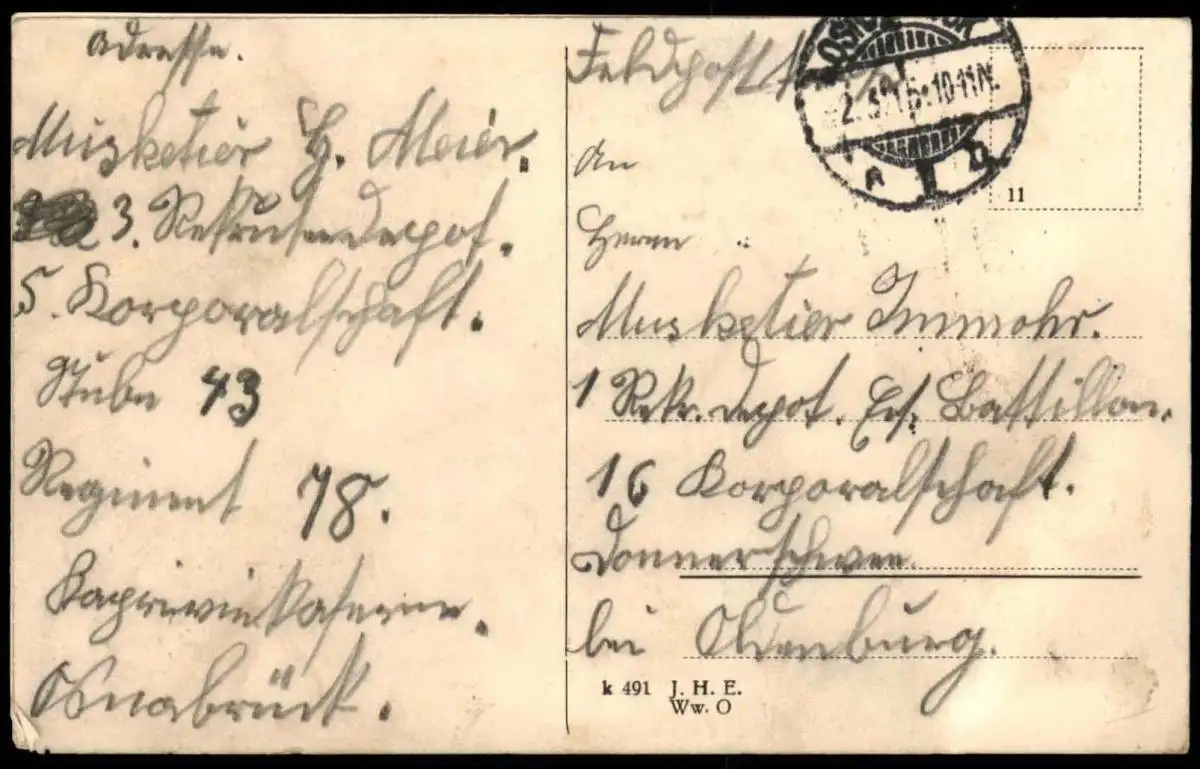 Adresse.
Musketier H. Meier.
3. Rekrutendepot.
5. Korporalschaft.
Stube 43
Regiment 78.
Kapriviekaserne.
Osnabrück.
Feldpost
OSN
10-11N.
An
Herrn
Musketier Immohr.
1 Rekr. Depot. Ers. Battillon.
16 Korporalschaft.
Donnerschwee.
bei Oldenburg.
11
k 491 J. H. E.
Ww. O